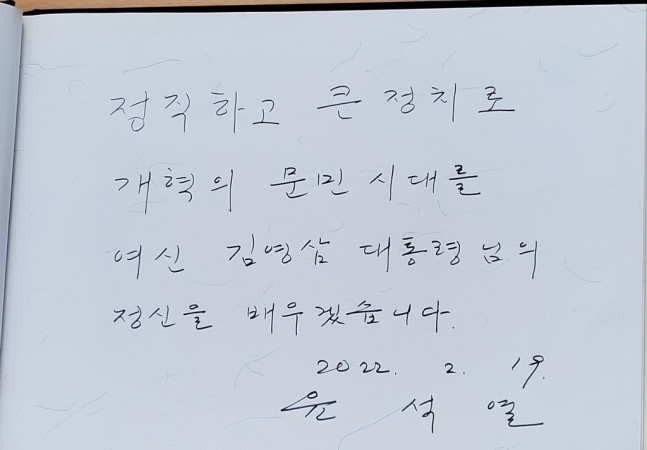 정직하고 큰 정치로
개혁의 문민시대를
여신 김영삼 대통령님의
정신을 배우겠습니다.
2022. 2. 19.
윤 석 열